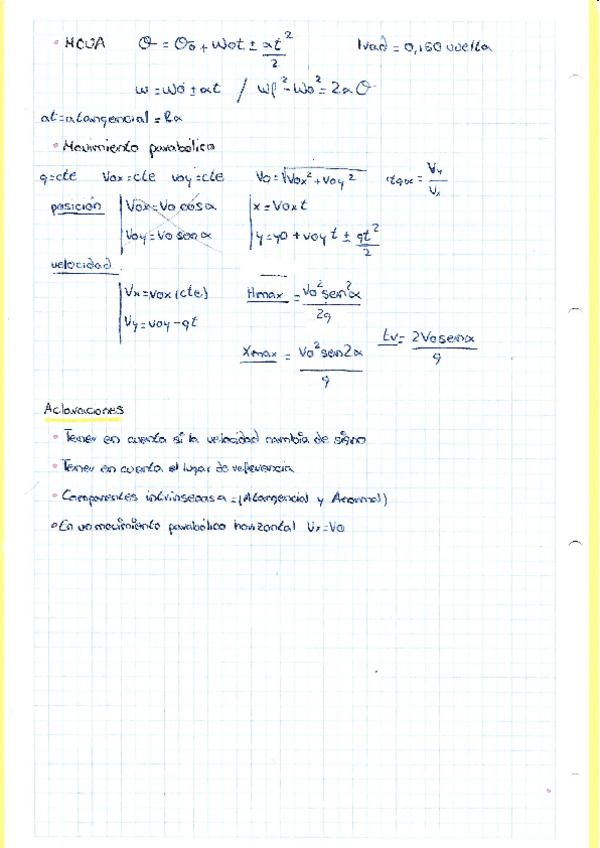 • MCUA θ = θo + wot ± αt²/2 1rad = 0,160 vuelta
w = wo ± αt / wf² - wo² = 2αθ
at = atangencial = Rα
• Movimiento parabólico
g=cte Vox=cte voy=cte Vo = √Vox² + voy² tgα = Vy/Vx
posición Vox = Vo cosα x = Vox t
Voy = Vo senα y = yo + voy t ± gt²/2
velocidad
Vx = vox (cte) Hmax = Vo² sen²α/2g
Vy = voy - gt tv = 2Vo senα/g
Xmax = Vo² sen2α/g
Aclaraciones
• Tener en cuenta si la velocidad cambia de signo
• Tener en cuenta el lugar de referencia
• Componentes intrínsecas a = (Atangencial y Anormal)
• En un movimiento parabólico horizontal Vx = Vo